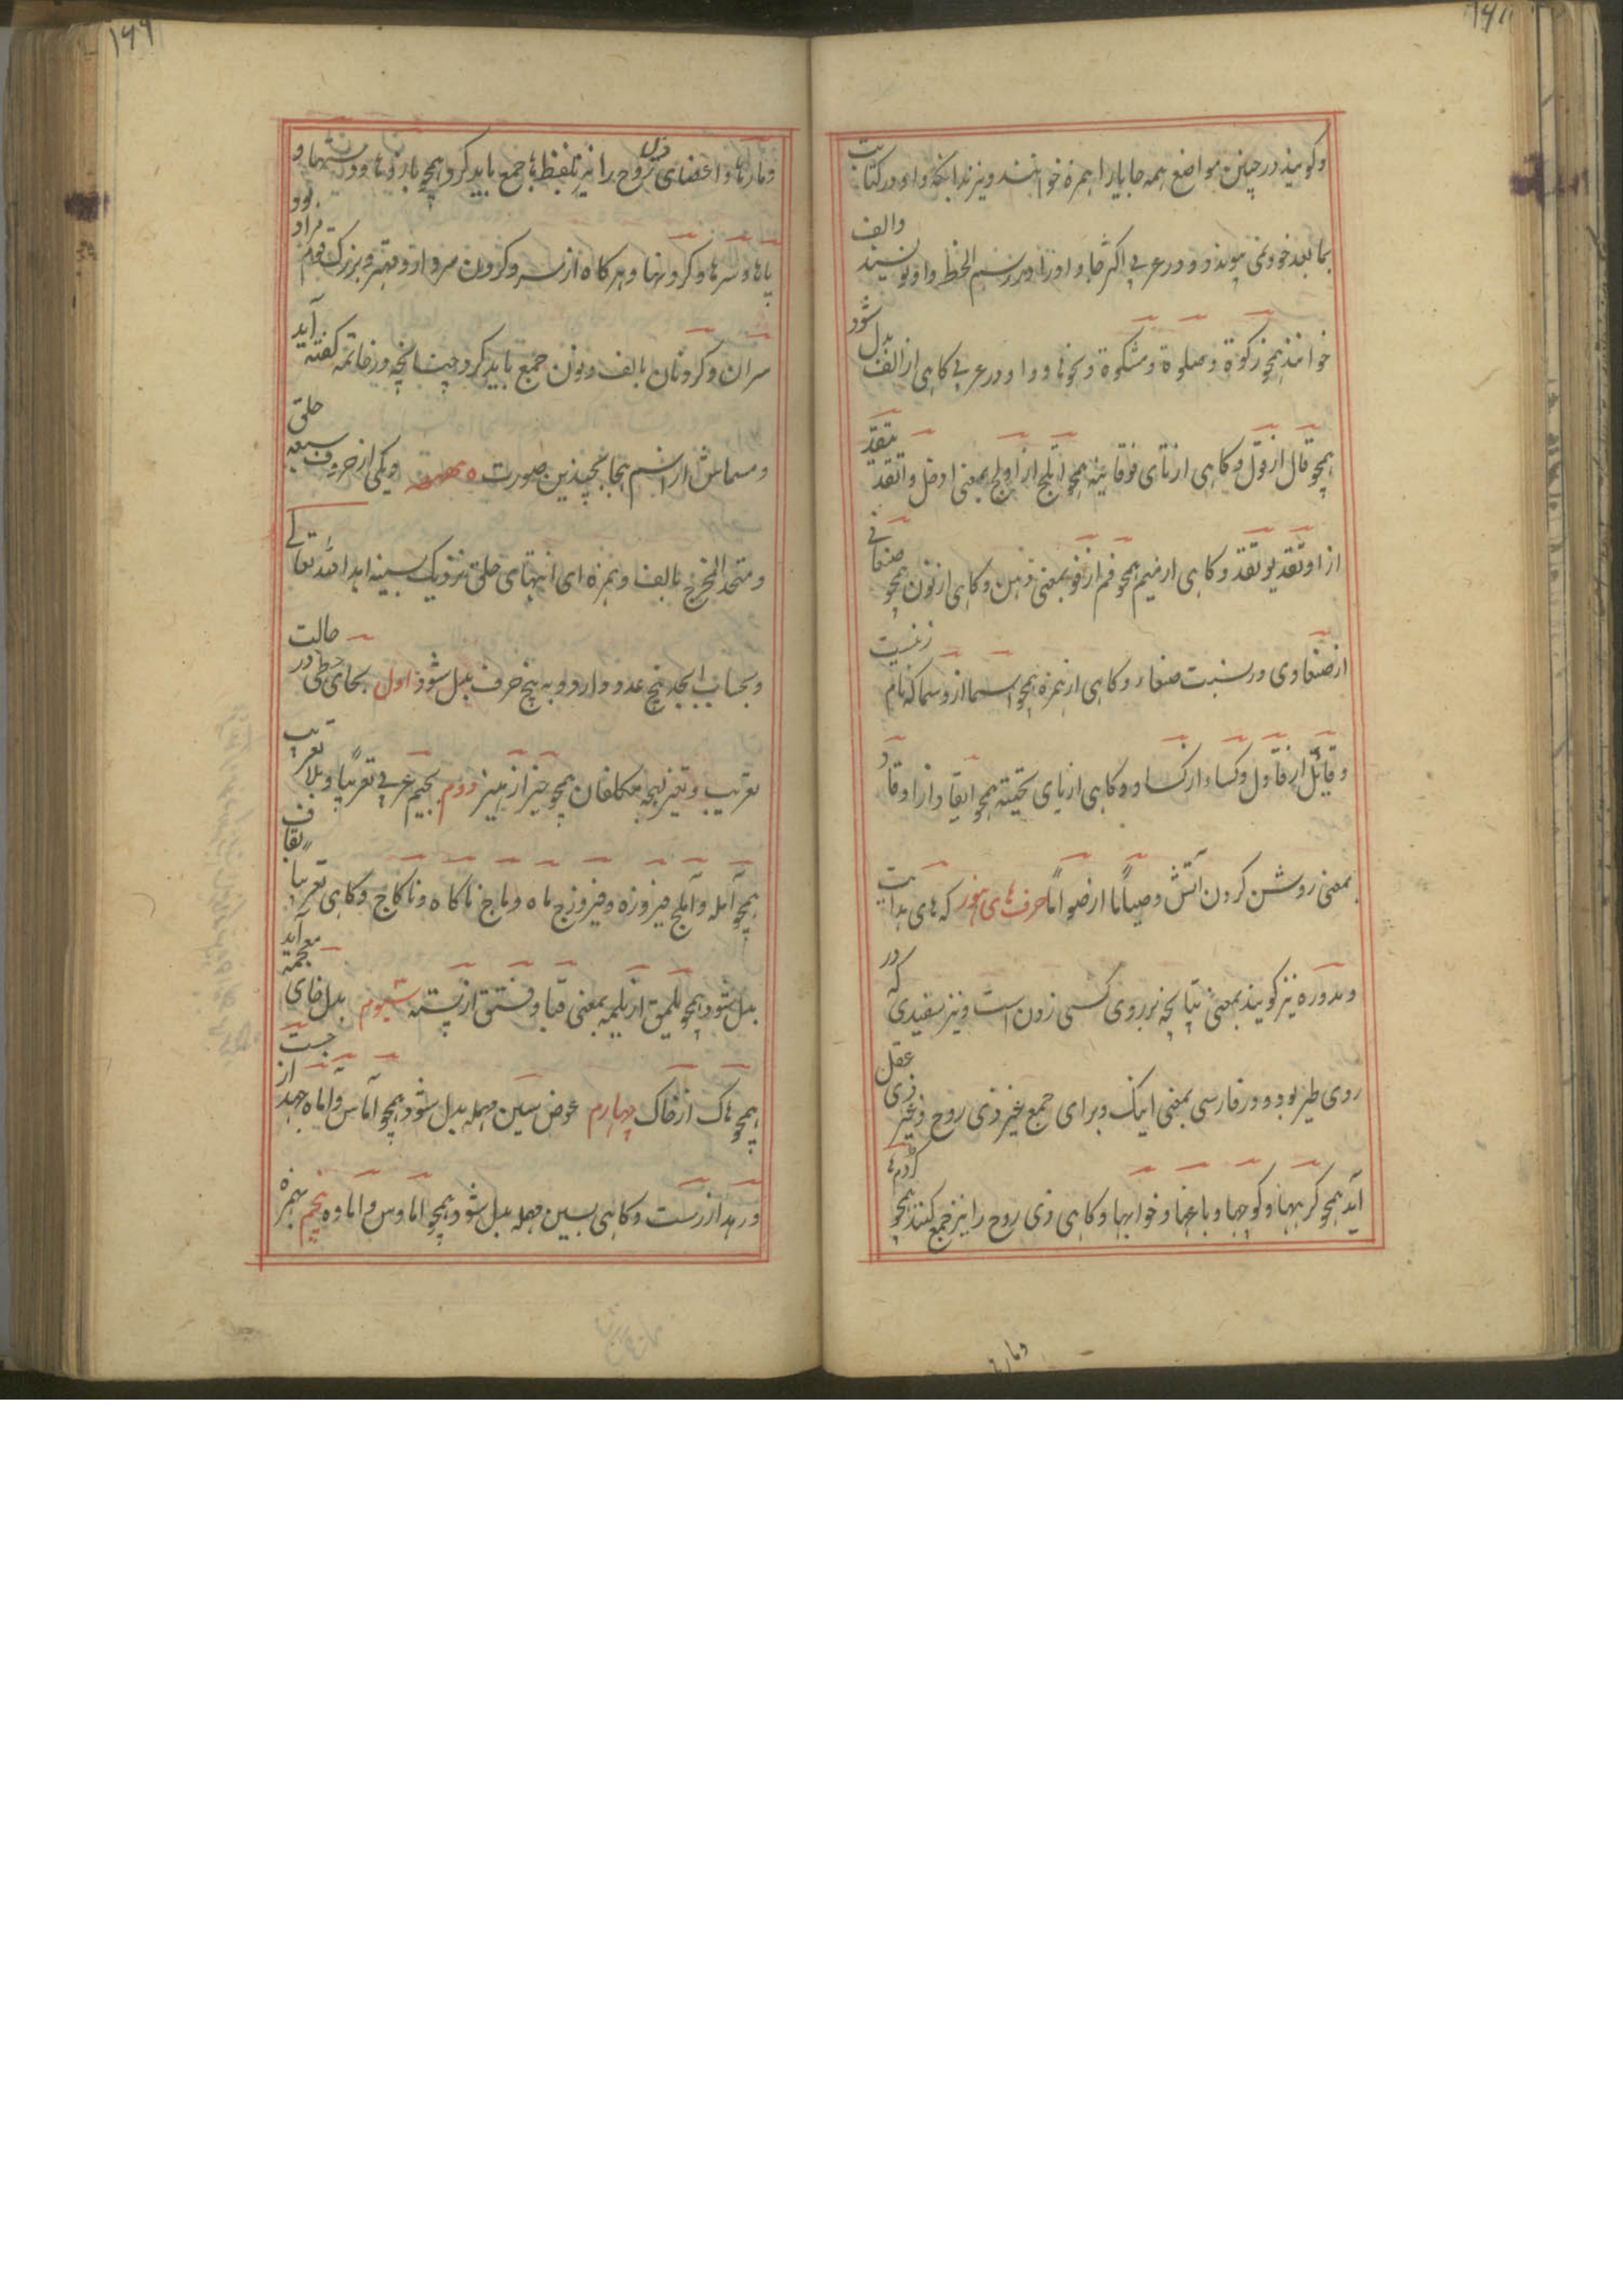 وگویند در چنین مواضع همه جا یا را همزه خوانند و نیز بدانکه واو در کتابت
بما بعد خود نمی پیوندد و در عربی اکثر جا واو را در رسم الخط واو نویسند والف
خوانند همچو زکوة و صلوة و مشکوة و نحوها و واو در عربی گاهی از الف بدل شود
همچو قال از قول و گاهی از تای فوقانیه همچو اتلج از اولج بمعنی ادخل و اتقد یتقد
از اوتقد یوتقد و گاهی از میم همچو فم از فو بمعنی دهن و گاهی از نون همچو صنعانی
از صنعاوی در نسبت صنعاء و گاهی از همزه همچو اسما از وسما که نام زنیست
و قائل از قاول و کساء از کساو و گاهی از یای تحتیه همچو ایقاد از اوقاد
بمعنی روشن کردن آتش و صیاما از صواما حرف های هوز که های هدایت
و مدوره نیز گویند بمعنی تپانچه بر روی کسی زدن است و نیز سفیدی که در
روی طیر بود و در فارسی بمعنی اینک و برای جمع غیر ذی روح و غیر ذی عقل
آید همچو گربهها و کوچها و باغها و خوابها و گاهی ذی روح را نیز جمع کنند همچو کژدمها
ومارها
ومارها و اعضای ذی روح را نیز بلفظ ها جمع باید کرد همچو بازوها و دستها و
پاها و سرها و گردنها و هرگاه از سر و گردن سردار و مهتر و بزرگ قوم مراد بود
سران و گردنان بالف و نون جمع باید کرد چنانچه در خاتمه گفته آید
و مسماش از اسم هجا بچندین صورت ه و یکی از حروف سبعه حلقی
و متحد المخرج بالف و همزه ای انتهای حلق نزدیک سینه ابدا الله تعالی
و بحساب ابجد پنج عدد دارد و به پنج حرف بدل شود اول بحای حطی در حالت
تعریب و تغیر لهجه متکلفان همچو حیز از هیز دوم بجیم عربی تعریبا و بلا تعریب
همچو آمله و آملج فیروزه و فیروزج ماه و ماج ناگاه و ناگاج و گاهی تعریبا بقاف
بدل شود همچو یلمق از یلمه بمعنی قبا و فستق از پسته سیوم بدل خای معجمه آید
همچو هاک از خاک چهارم عوض سین مهمله بدل شود همچو آماس و آماه جهد از جست
و رهد از رست و گاهی بسین مهمله بدل شود همچو اماوس و اماوه پنجم بهمزه